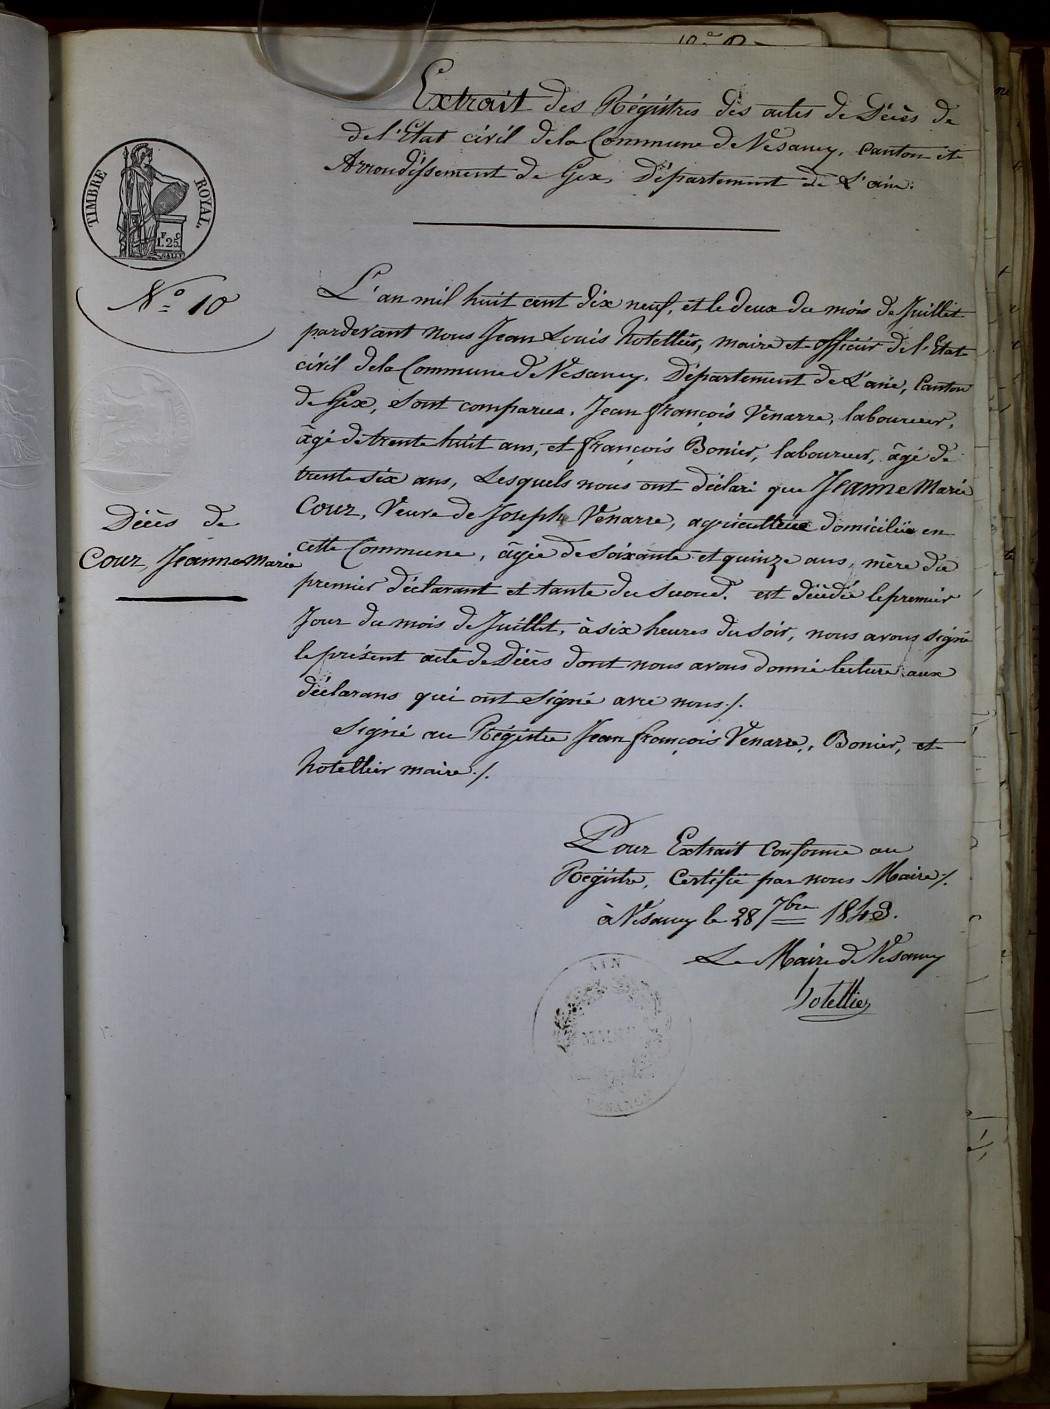 Extrait des Régistres des actes de Décès de
de l'Etat civil de la Commune de Vésancy, canton et
Arrondissement de Gex, Département de L'ain.
TIMBRE ROYAL.
1 F. 25 C.
N.o 10
L'an mil huit cent dix neuf, et le deux du mois de Juillet
pardevant nous Jean Louis hotellier, maire et officier de l'Etat
civil de la Commune de Vésancy. Département de L'ain, Canton
de Gex, Sont comparus, Jean françois Venarre, laboureur,
âgé de trente huit ans, et françois Bonier, laboureur, âgé de
trente six ans, Lesquels nous ont déclaré que Jeanne Marie
Cour, Veuve de Joseph Venarre, agricultrice domiciliée en
cette Commune, âgée de soixante et quinze ans, mère du
premier déclarant et tante du second. est décédée le premier
Jour du mois de Juillet, à six heures du soir, nous avons signé
le présent acte de Décès dont nous avons donné lecture aux
déclarans qui ont signé avec nous ./.
Décès de
Cour, Jeanne Marie
Signé au Régistre Jean françois Venarre, Bonier, et
hotellier maire ./.
Pour Extrait Conforme au
Régistre, Certifié par nous Maire ./.
à Vésancy le 28 7bre 1843.
Le Maire de Vésancy
hotellier
AIN
MAIRIE
VESANCY